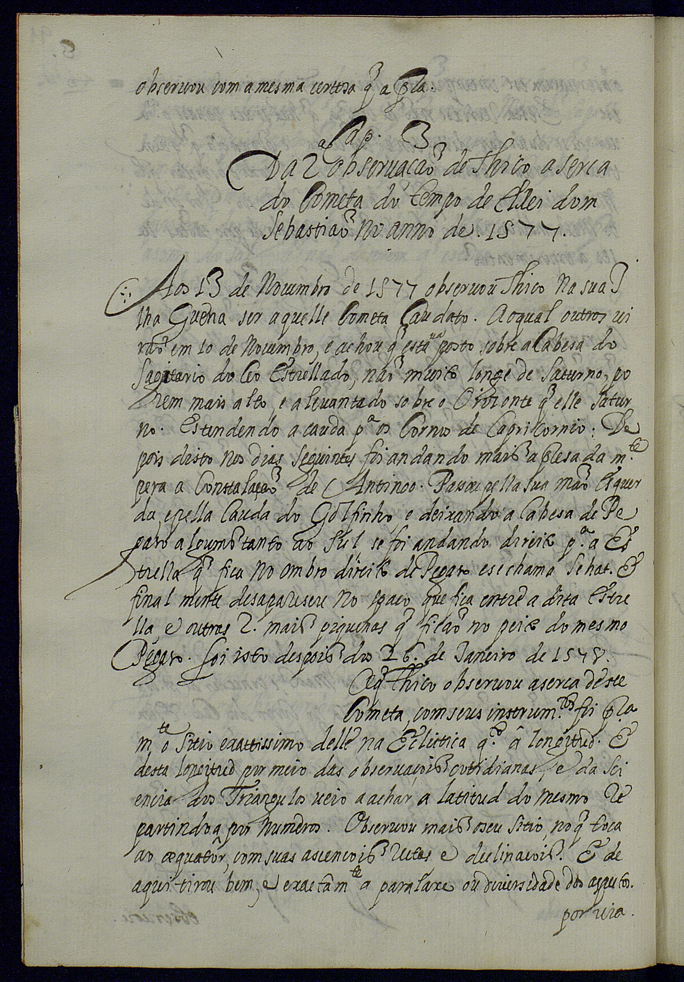 observou com a mesma certeza q̃ a pla.
Cap. 3
Da 2ª observação de Thico aserca
do Cometa do tempo de ElRei dom
Sebastião no anno de. 1577.
Aos 13 de Novembro de 1577 observou Thico na sua I
lha Guena ser aquelle Cometa Caudato. Aoqual outros vi
rão em 10 de Novembro, e achou q̃ estava posto sobre a Cabesa do
Sagitario do Ceo Estrellado, não muito longe de Saturno, po
rem mais alto e alevantado sobre o Orizonte q̃ elle Satur
no. Estendendo a cauda pª os Cornos de Capricornio: De
pois disto nos dias seguintes foi andando mais apresada mte
para a Constalação de Antinoo. Pasou pella sua mão Esquer
da, e pella Cauda do Golfinho e deixando a Cabesa de Pe
gazo algum tanto ao Sul se foi andando direito pª a Es
trella q̃ fica no ombro direito de Pegazo e se chama Sehat. E
final mente desapareseu no spaço que fica entre a dita Estre
lla, e outras 2. mais piquenas q̃ ficão no peito do mesmo
Pegazo. Foi isto despois dos 26. de Janeiro de 1578.
O q̃ Thico observou aserca deste
Cometa, com seus instrumtos foi pla
mte o Sitio exattissimo delle na Eclittica qto â longitud. E
desta longitud por meio das observaçois quotidianas, e da Sci
encia dos Triangulos veio a achar a latitud do mesmo Re
partindoa por numeros. Observou mais o seu sitio, no q̃ toca
ao æquatôr, com suas ascencois Rectas e declinacois. E de
aqui tirou bem, e exactamte a paralaxe ou diversidade dos aspectos.
por via.